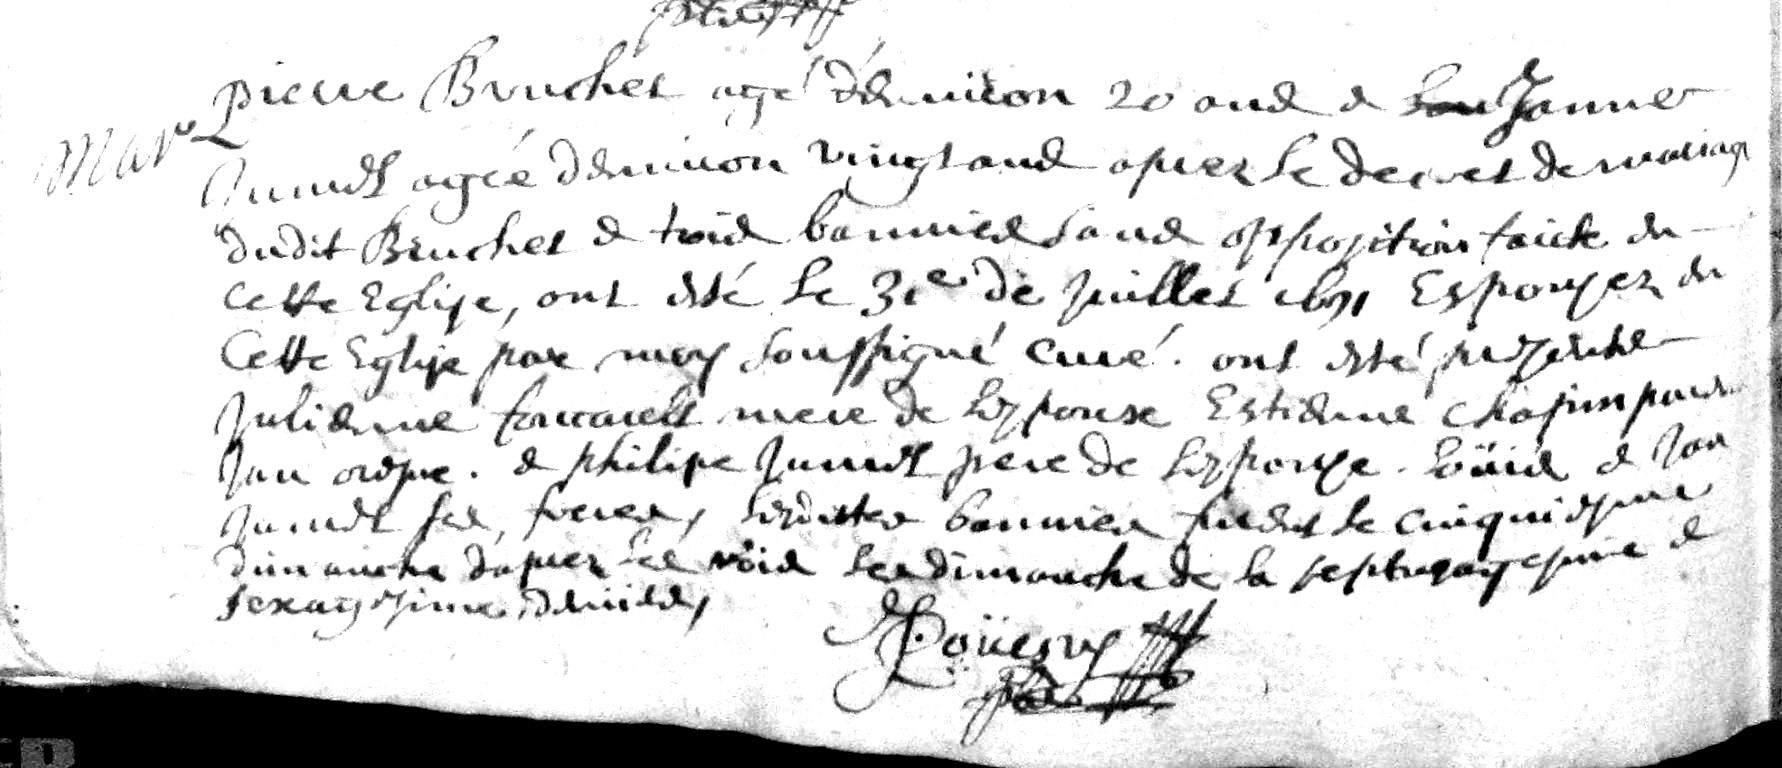 Mar
pierre Bruchet agé d'environ 20 ans & Janne
agée d'environ vingt ans apres le decret de mariage
dudit Bruchet & trois bannies sans opposition faicte en
cette Eglise, ont esté le 31e de juillet 1691 Espousez en
Cette Eglise par moy soussigné curé. ont esté presents
julienne foucault mere de l'espoux Estienne
& philipe pere de l'espouse. Loüis & Jan
ses freres, lesdittes bannies furent le cinquiesme
dimanche d'apres les rois les dimanche de la septuagesime &
sexagesime